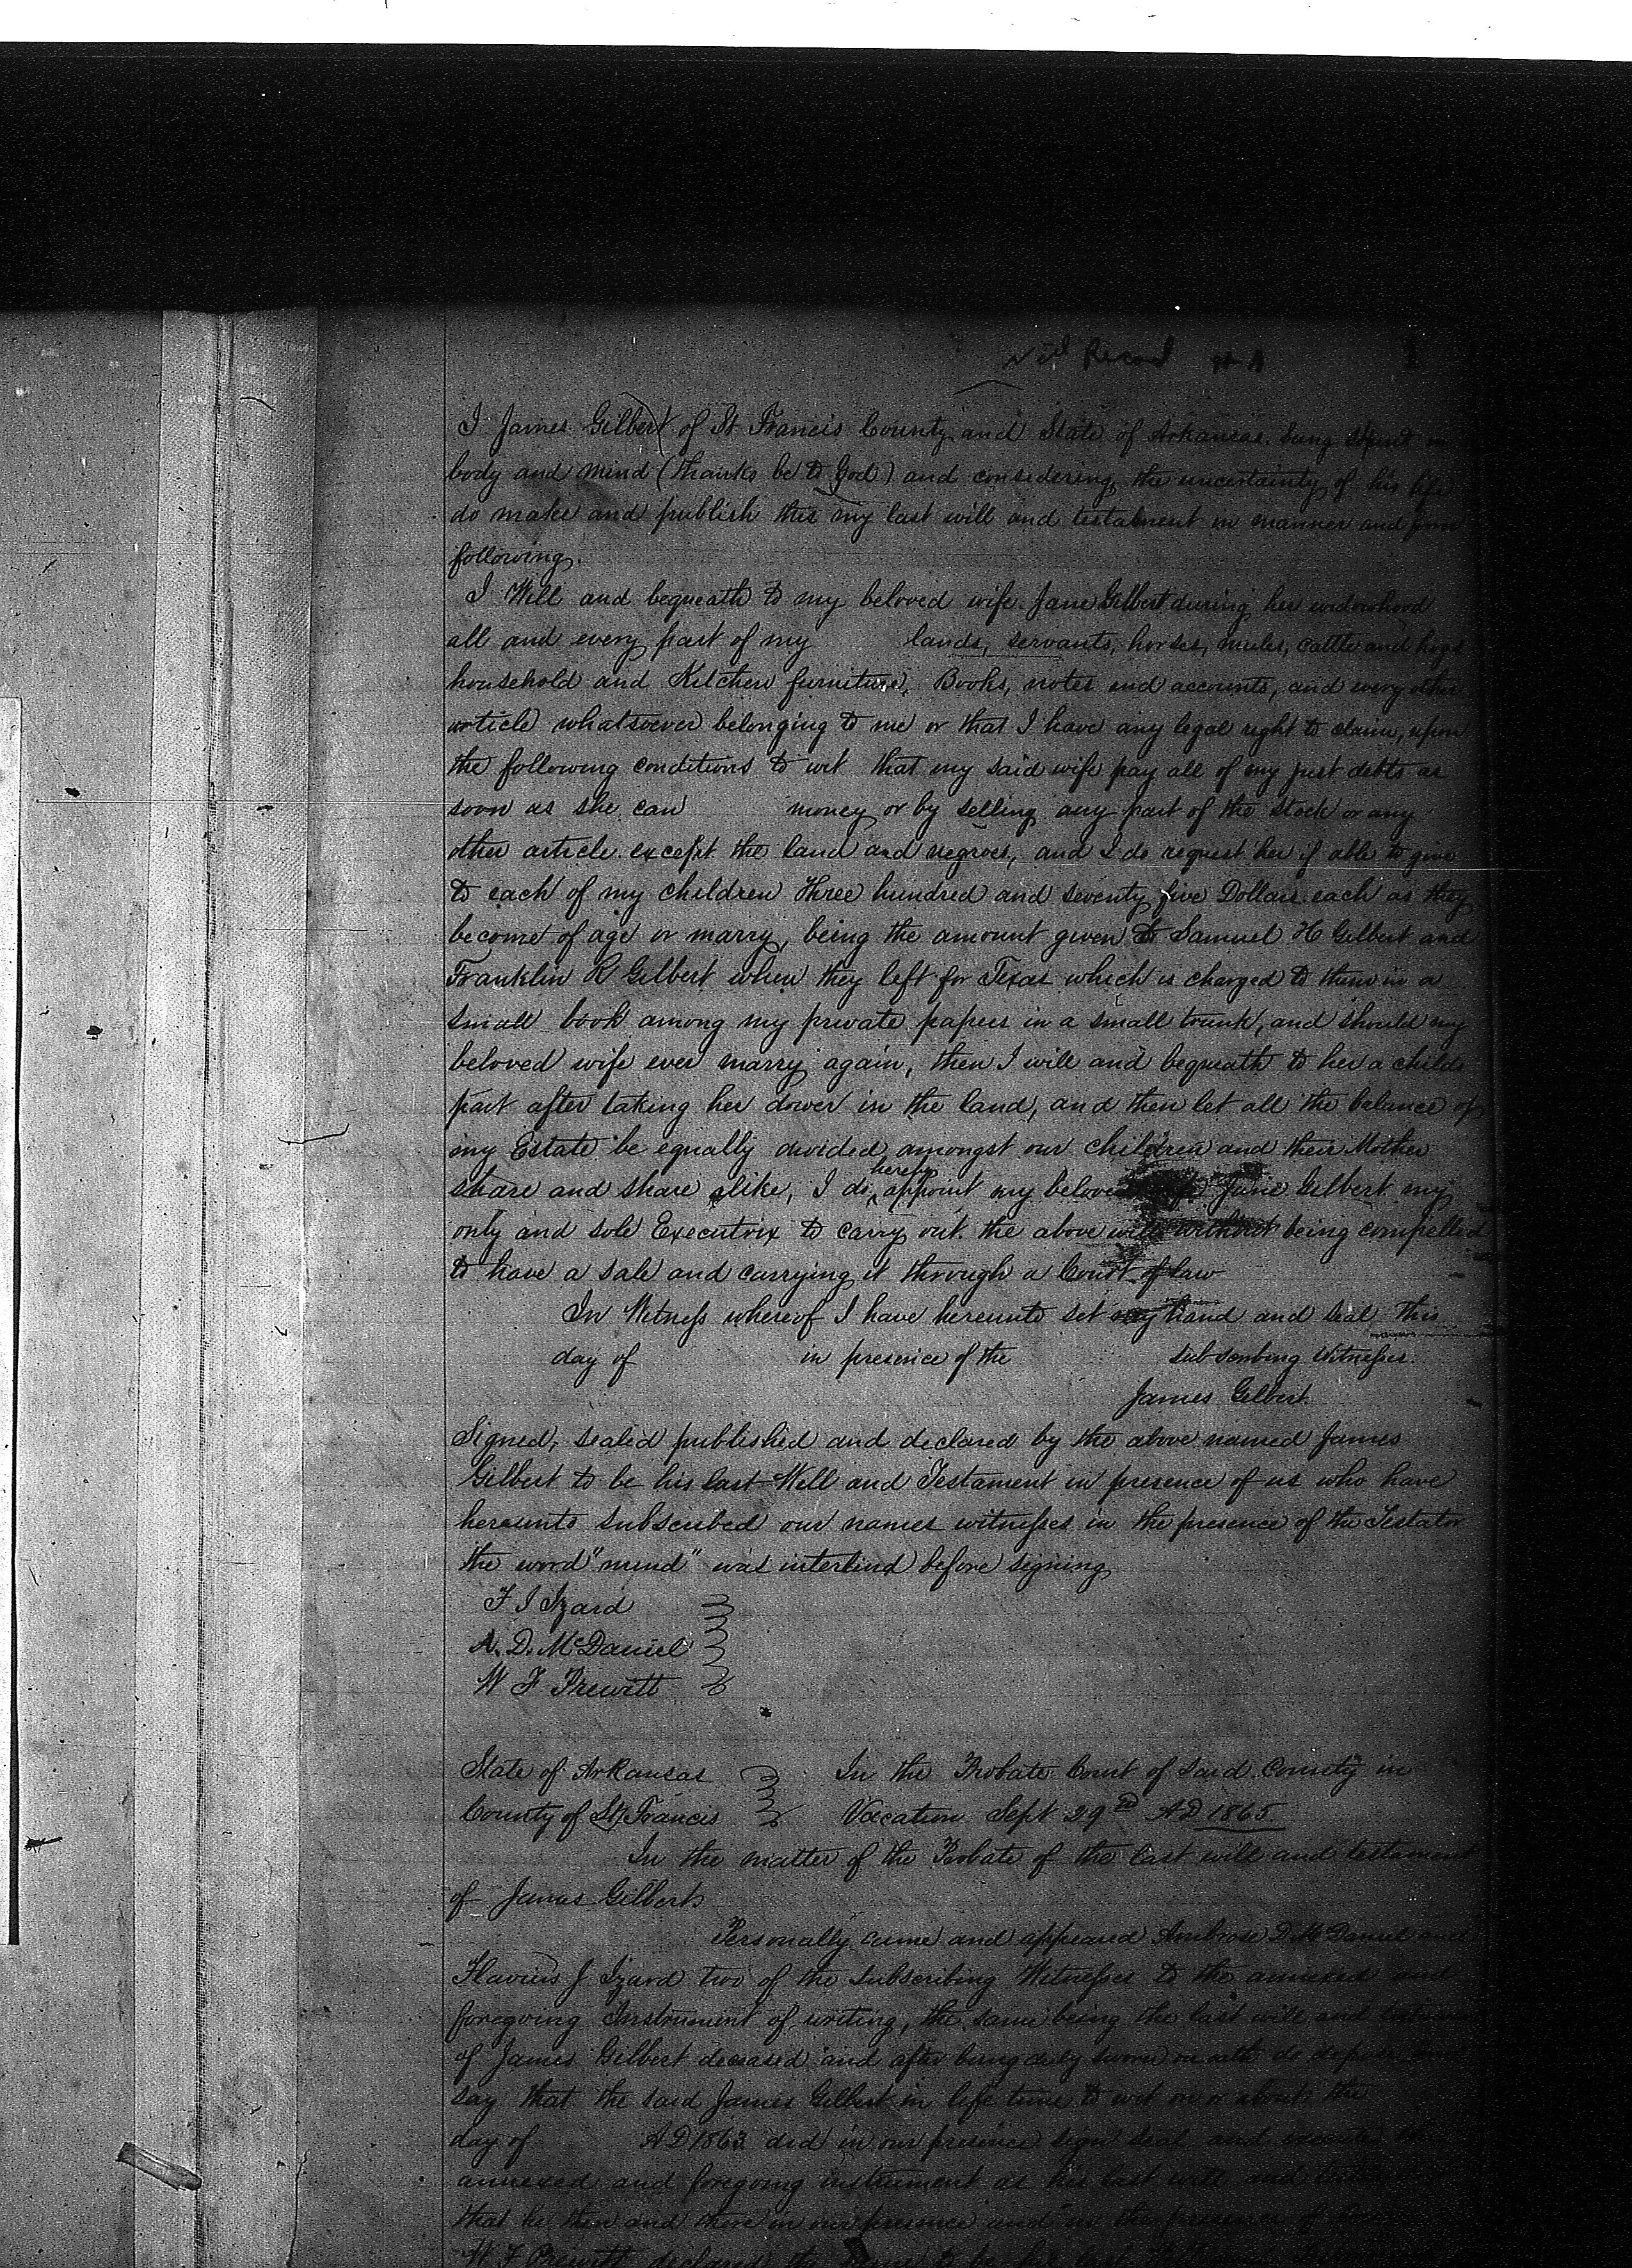 Record 1
I James Gilbert of St Francis County and State of Arkansas. being
body and mind (thanks be to God) and considering the uncertainty of his life
do make and publish this my last will and testalment in manner and form
following.
I Will and bequeath to my beloved wife Jane Gilbert during her widowhood
all and every part of my lands, servants, horses, mules, cattle and hogs
household and Kitchen furniture, Books, notes and accounts, and every other
article whatsoever belonging to me or that I have any legal right to claim, upon
the following conditions to wit that my said wife pay all of my just debts as
soon as she can money or by selling any part of the stock or any
other article except the land and negroes, and I do request her if able to give
to each of my children three hundred and seventy five Dollars each as they
become of age or marry, being the amount given to Samuel H Gilbert and
Franklin R Gilbert when they left for Texas which is charged to them in a
small book among my private papers in a small trunk, and should my
beloved wife ever marry again, then I will and bequeath to her a childs
part after taking her dower in the land, and then let all the balance of
my Estate be equally divided amongst our children and their Mother
share and share alike, I do hereby appoint my beloved Jane Gilbert my
only and sole Executrix to carry out the above will without being compelled
to have a sale and carrying it through a Court of law
In Witness whereof I have hereunto set my hand and seal this
day of in presence of the subscribing witnesses.
James Gilbert.
Signed, sealed published and declared by the above named James
Gilbert to be his last Will and Testament in presence of us who have
hereunto subscribed our names witnesses in the presence of the Testator
the word "mind" was interlind before signing
F I Izard
A. D. McDaniel
W F Prewitt
State of Arkansas In the Probate Court of said County in
County of St Francis Vacation Sept 29th AD 1865
In the matter of the Probate of the last will and testament
of James Gilbert
Personally came and appeared Ambrose D. McDaniel and
Flavius J Izard two of the subscribing Witnesses to the annexed and
foregoing Instrument of writing, the same being the last will and
of James Gilbert deceased and after being duly sworn on oath do depose and
say that the said James Gilbert in life time to wit on or about the
day of AD 1863 did in our presence sign seal and execute the
annexed and foregoing instrument as his last will and
that he then and there in our presence and in the presence of
W F Prewitt declared the same to be his last